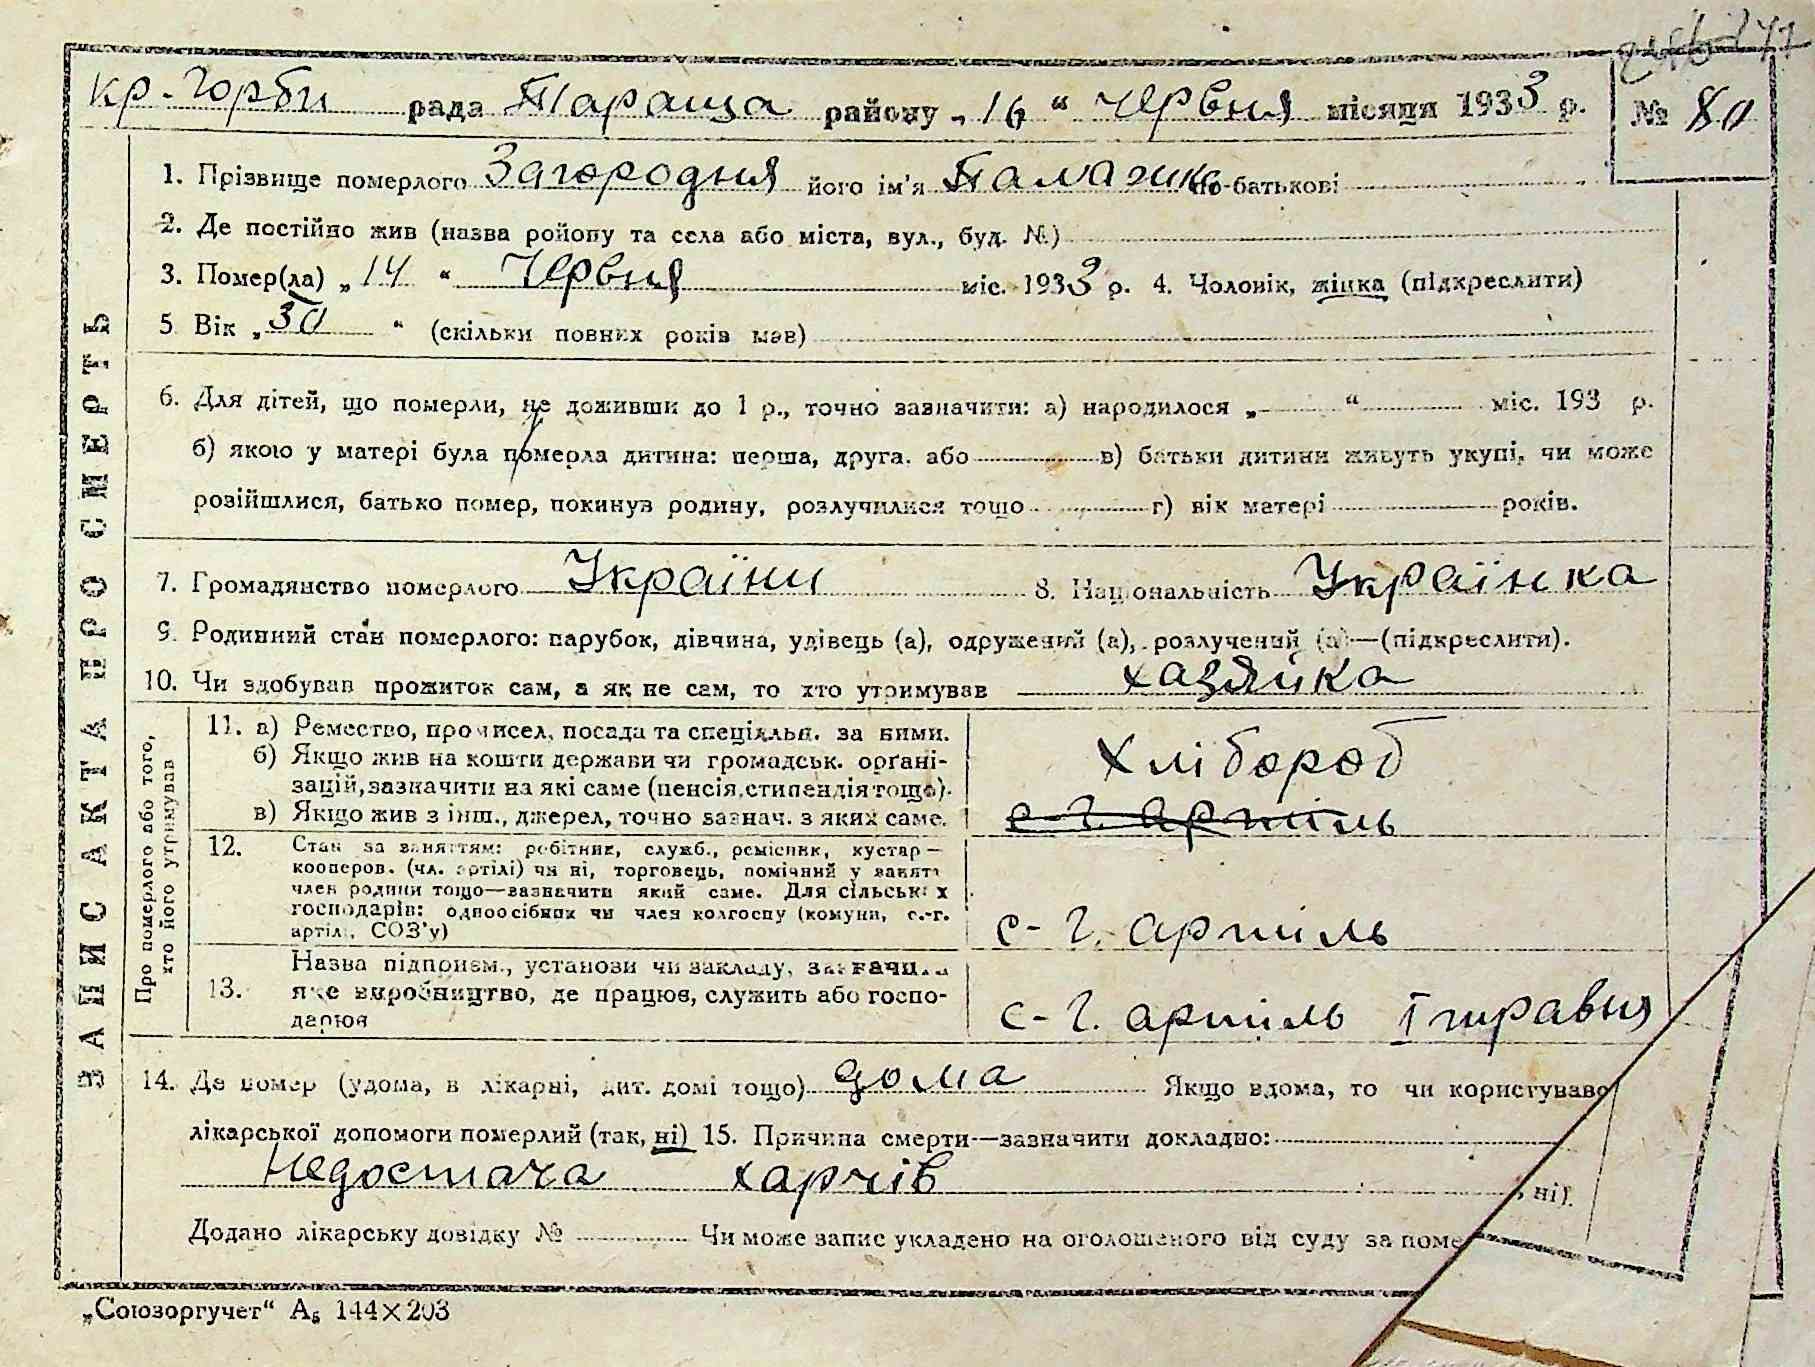 кр-Горби рада Тараща району „16“ червня місяця 1933 р. № 80
1. Прізвище померлого Загородня його ім'я Палажка по-батькові
2. Де постійно жив (назва ройопу та села або міста, вул., буд. №)
3. Помер(ла) „14“ Червня міс. 1933 р. 4. Чоловік, жінка (підкреслити)
5 Вік „30“ (скільки повних років мав)
6. Для дітей, що померли, не доживши до 1 р., точно зазначити: а) народилося „ “ міс. 193 р.
б) якою у матері була померла дитина: перша, друга, або в) батьки дитини живуть укупі, чи може
розійшлися, батько помер, покинув родину, розлучилися тощо г) вік матері років.
7. Громадянство померлого України 8. Національність Українка
9. Родинний стан померлого: парубок, дівчина, удівець (а), одружений (а), розлучений (а)—(підкреслити).
10. Чи здобував прожиток сам, а як не сам, то хто утримував хазяйка
ЗАПИС АКТА ПРО СМЕРТЬ
Про померлого або того, хто його утримував
11. а) Ремество, промисел, посада та спеціальн. за ними.
б) Якщо жив на кошти держави чи громадськ. органі-
зацій, зазначити на які саме (пенсія, стипендія тощо).
в) Якщо жив з інш., джерел, точно зазнач. з яких саме.
Хлібороб
с-г. артіль
12. Стан за заняттям: робітник, служб., ремісник, кустар—
кооперов. (чл. артілі) чи ні, торговець, помічний у занятт
член родини тощо—зазначити який саме. Для сільських
господарів: одноосібник чи член колгоспу (комуни, с.-г.
артілі, СОЗ'у)
с-г. артіль
13. Назва підприєм., установи чи закладу, зазначи
яке виробництво, де працює, служить або госпо-
дарює
с-г. артіль 1 травня
14. Де помер (удома, в лікарні, дит. домі тощо) дома Якщо вдома, то чи користувався
лікарської допомоги померлий (так, ні) 15. Причина смерти—зазначити докладно:
Недостача харчів ні).
Додано лікарську довідку № Чи може запис укладено на оголошеного від суду за поме
„Союзоргучет“ А₅ 144×203